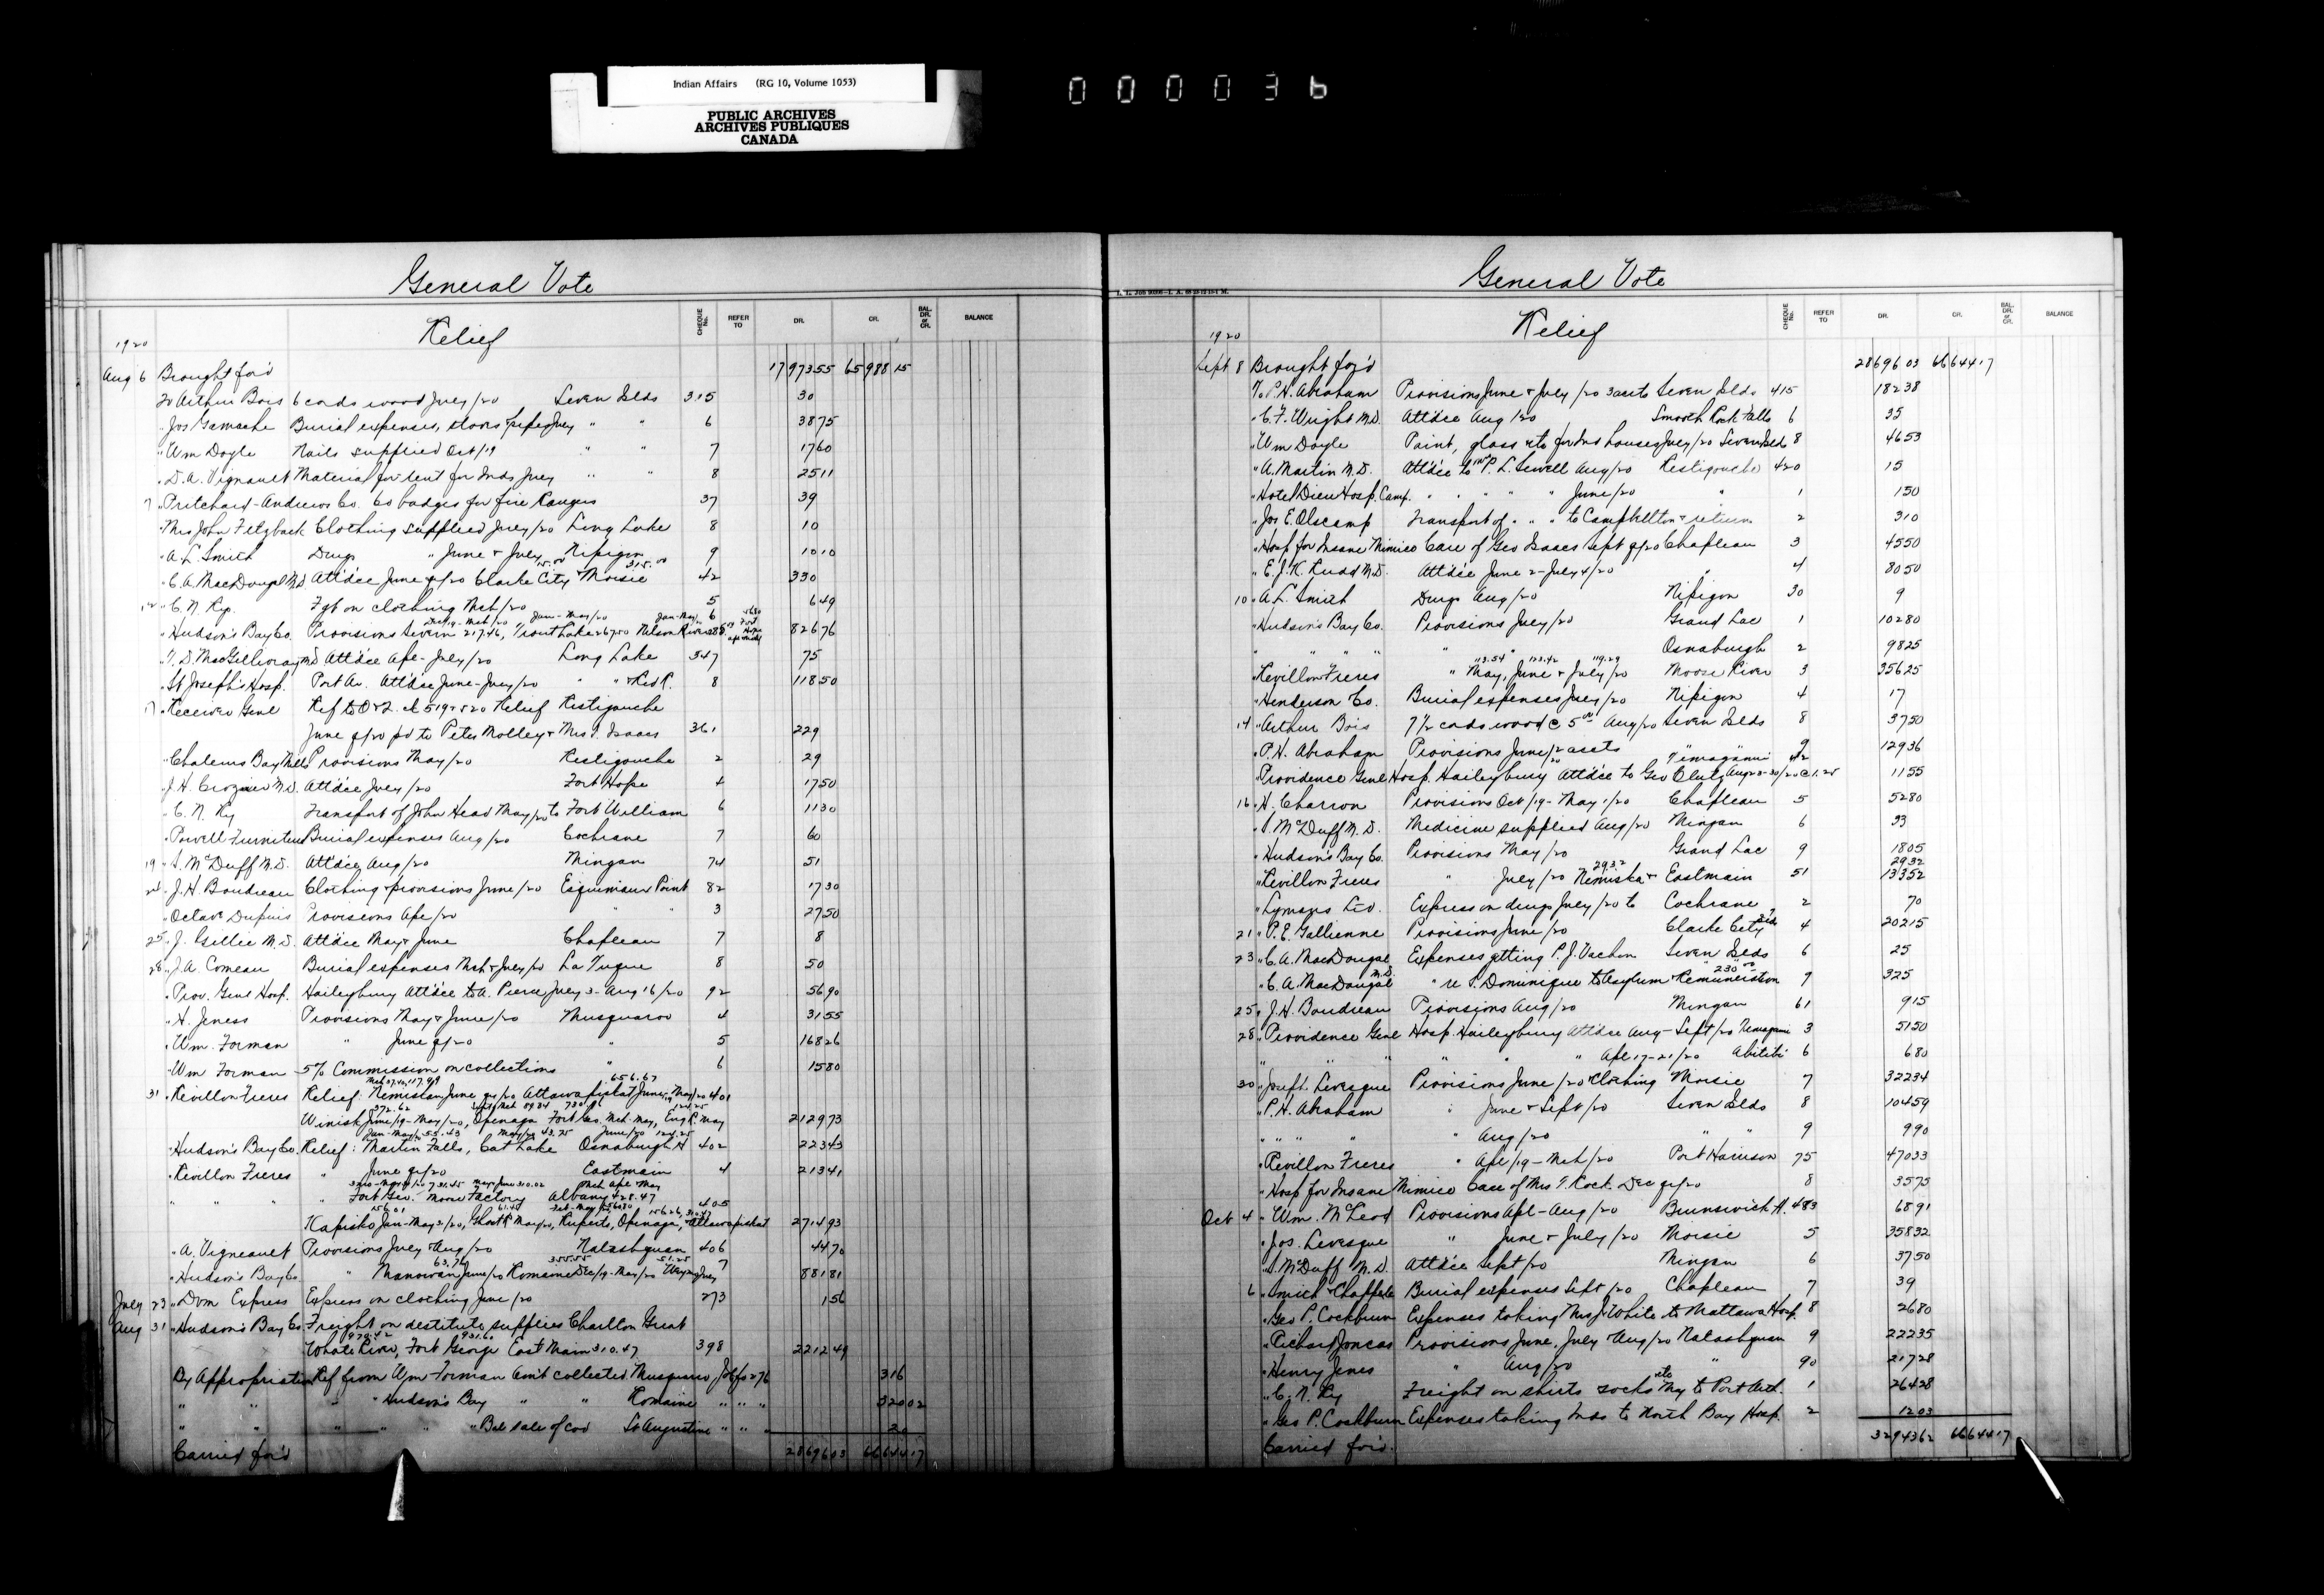 Indian Affairs (RG 10, Volume 1053)
PUBLIC ARCHIVES
ARCHIVES PUBLIQUES
CANADA
000036
General Vote
Relief
CHEQUE No. REFER TO DR. CR. BAL. DR. or CR. BALANCE
1920
Aug 6 Brought for'd 17973 55 65988 15
To Arthur Bois 6 cords wood July/20 Seven Islds 315 30
" Jos Gamache Burial expenses, stoves & pipes July " " 6 38 75
" Wm Doyle Nails supplied Oct/19 " " 7 17 60
" D. A. Vignault Material for tent for Inds July " " 8 25 11
7 " Pritchard-Andrews Co. 60 badges for fire Rangers 37 39
" Mrs John Fetzback Clothing supplied July/20 Long Lake 8 10
" A. L. Smith Drugs " June & July Nipigon 9 10 10
" C. A. MacDougal M.D. Att'dce June qr/20 Clarke City 15.00 & Moisie 315.00 42 330
12 " C. N. Ry. Fgt on clothing Mch/20 5 6 49
" Hudson's Bay Co. Provisions Severn 217.46, Trout Lake 267.50 Nelson River 6 826 76
" T. D. MacGillivray M.D. Att'dce Ape-July/20 Long Lake 347 75
" St Joseph's Hosp. Port Ar. Att'dce June-July/20 " " & Red R. 8 118 50
17 " Receiver Genl Ref to O & L. ck 519 & 520 Relief Restigouche
June qr/20 pd to Peter Molley & Mrs I. Isaacs 361 229
" Chaleurs Bay Mills Provisions May/20 Restigouche 2 29
" J. H. Crozier M.D. Att'dce July/20 Fort Hope 4 17 50
" C. N. Ry Transport of John Head May/20 to Fort William 6 11 30
" Powell Furniture Burial expenses Aug/20 Cochrane 7 60
19 " S. McDuff M.D. Att'dce Aug/20 Mingan 74 51
24 " J. H. Boudreau Clothing & provisions June/20 Esquimaux Point 82 17 30
" Octave Dupuis Provisions Ape/20 " " 3 27 50
25 " J. Gillie M.D. Att'dce May & June Chapleau 7 8
28 " J. A. Comeau Burial expenses Mch & July/20 La Tuque 8 50
" Prov. Genl Hosp. Haileybury Att'dce to A. Pierce July 3 - Aug 16/20 92 56 90
" H. Jeness Provisions May & June/20 Musquaroo 4 31 55
" Wm. Forman " June qr/20 " 5 168 26
" Wm Forman 5% Commission on collections " 6 15 80
31 " Revillon Freres Relief: Nemiskau June qr/20 Attawapiskat June/19 May/20 656.67 401
Winisk June/19-May/20, Openaga Fort Geo. Mch. May, Eng R. May 2129 73
" Hudson's Bay Co. Relief: Martin Falls, Cat Lake Osnaburgh H 402 223 43
" Revillon Freres " June qr/20 Eastmain 4 213 41
" " " Fort Geo. Moose Factory Albany 428.47 405
Kapisko Jan-May 31/20, Ghost R May/20, Ruperts, Openaga, Attawapiskat 2714 93
" A. Vigneault Provisions July & Aug/20 Natashquan 406 44 70
" Hudson's Bay Co. " Manowan June/20 Romaine Dec/19-May/20 7 881 81
July 23 " Dom Express Express on clothing June/20 273 1 56
Aug 31 " Hudson's Bay Co. Freight on destitute supplies Charlton Great
Whale River, Fort George East Main 310.47 398 2212 49
By Appropriation Ref from Wm Forman am't collected Musquaro 316
" " " " Hudson's Bay " " Romaine " " " 320 02
" " " " " Bal sale of cod St Augustine " " " 20
Carried for'd 28696 03 66644 17
General Vote
Relief
CHEQUE No. REFER TO DR. CR. BAL. DR. or CR. BALANCE
1920
Sept 8 Brought for'd 28696 03 66644 17
To P. H. Abraham Provisions June & July/20 3 accts Seven Islds 415 182 38
" C. F. Wright M.D. Att'dce Aug 1/20 Smooth Rock Falls 6 35
" Wm Doyle Paint, glass etc for Ind houses July/20 Seven Islds 8 46 53
" A. Martin M.D. Att'dce to Mrs P. L. Sewell Aug/20 Restigouche 420 15
" Hotel Dieu Hosp. Camp. " " " " June/20 " 1 1 50
" Jos E. Olscamp Transport of " " " to Campbellton & return 2 3 10
" Hosp for Insane Mimico Care of Geo Isaacs Sept qr/20 Chapleau 3 45 50
" E. J. K. Rudd M.D. Att'dce June 2-July 4/20 " 4 80 50
10 " A. L. Smith Drugs Aug/20 Nipigon 30 9
" Hudson's Bay Co. Provisions July/20 Grand Lac 1 102 80
" " " " " " Osnaburgh 2 98 25
" Revillon Freres " May, June & July/20 113.54 123.42 119.29 Moose River 3 356 25
" Henderson Co. Burial expenses July/20 Nipigon 4 17
14 " Arthur Bois 7 1/2 cords wood @ 5.00 Aug/20 Seven Islds 8 37 50
" P. H. Abraham Provisions June/20 2 accts " " 9 129 36
" Providence Genl Hosp. Haileybury Att'dce to Geo Clutz Aug 23-30/20 @ 1.25 Temagami 42 11 55
16 " H. Charron Provisions Oct/19-May 1/20 Chapleau 5 52 80
" S. McDuff M.D. Medicine supplied Aug/20 Mingan 6 33
" Hudson's Bay Co. Provisions May/20 Grand Lac 9 18 05
" Revillon Freres " July/20 Nemiska 29.32 & Eastmain 51 29 32 133 52
" Lymans Ltd. Express on drugs July/20 to Cochrane 2 70
21 " P. E. Gallienne Provisions June/20 Clarke City 4 202 15
23 " C. A. MacDougal Expenses getting P. J. Vachon Seven Islds 6 25
" C. A. MacDougal M.D. " re S. Dominique to Asylum & Remuneration 230.00 7 325
25 " J. H. Boudreau Provisions Aug/20 Mingan 61 9 15
28 " Providence Genl Hosp. Haileybury Att'dce Aug-Sept/20 Temagami 3 51 50
" " " " " " Ape 17-21/20 Abitibi 6 6 80
30 " Joseph Levesque Provisions June/20 & Clothing Moisie 7 322 34
" P. H. Abraham " June & Sept/20 Seven Islds 8 104 59
" " " " " Aug/20 " " 9 9 90
" Revillon Freres " Ape/19-Mch/20 Port Harrison 75 470 33
" Hosp for Insane Mimico Care of Mrs T. Rock Dec qr/20 8 35 75
Oct 4 " Wm. McLeod Provisions Apl-Aug/20 Brunswick H. 483 68 91
" Jos. Levesque " June & July/20 Moisie 5 358 32
" S. McDuff M.D. Att'dce Sept/20 Mingan 6 37 50
6 " Smith & Chapple Burial expenses Sept/20 Chapleau 7 39
" Geo P. Cockburn Expenses taking Mrs J. White to Mattawa Hosp. 8 26 80
" Richard Joncas Provisions June, July & Aug/20 Natashquan 9 222 35
" Henry Jenes " Aug/20 " 90 217 28
" C. N. Ry Freight on shirts socks etc May to Port Arth. 1 264 28
" Geo P. Cockburn Expenses taking Inds to North Bay Hosp. 2 12 03
Carried for'd 32943 62 66644 17